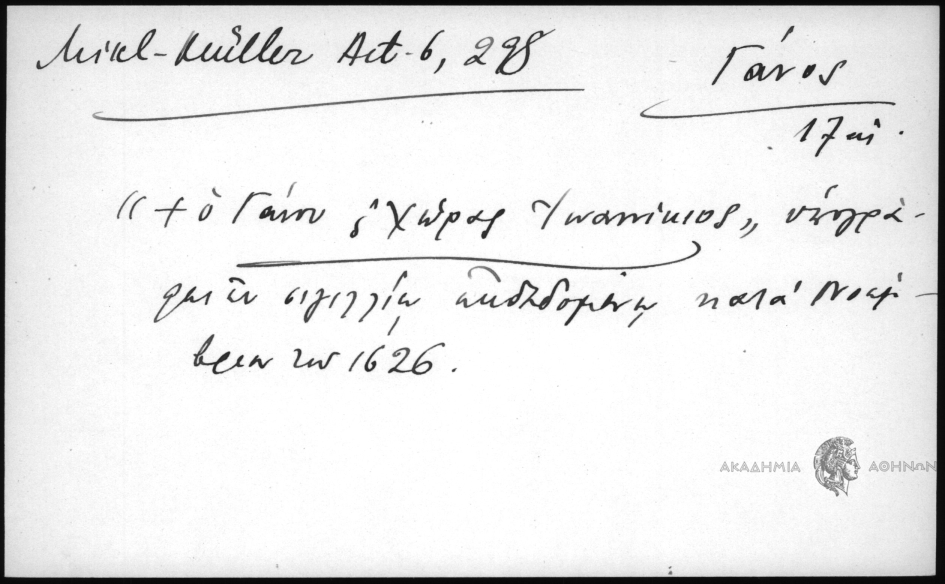 Mikl-Müller Act. 6, 298
Γάνος
17 αἰ.
"+ ὁ Γάνου ϗ Χώρας Ἰωαννίκιος„ ὑπογρά-
φει ἐν σιγιλλίῳ ἐκδεδομένῳ κατὰ Νοέμ-
βριον τοῦ 1626.
ΑΚΑΔΗΜΙΑ ΑΘΗΝΩΝ